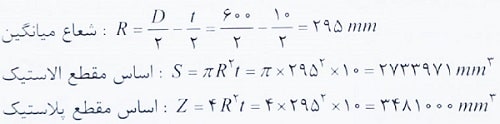 شعاع میانگین : R = D/۲ − t/۲ = ۶۰۰/۲ − ۱۰/۲ = ۲۹۵ mm
اساس مقطع الاستیک : S = πR²t = π × ۲۹۵² × ۱۰ = ۲۷۳۳۹۷۱ mm³
اساس مقطع پلاستیک : Z = ۴R²t = ۴ × ۲۹۵² × ۱۰ = ۳۴۸۱۰۰۰ mm³